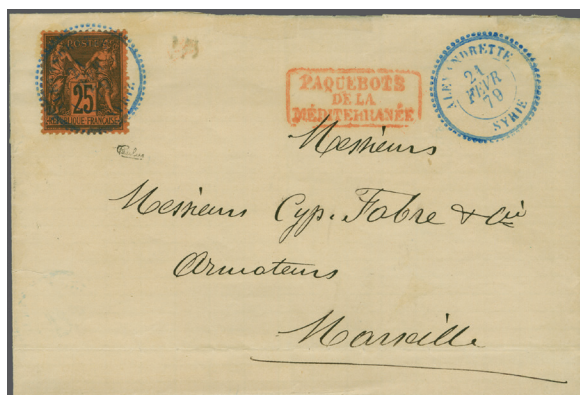 POSTES
25
REPUBLIQUE FRANÇAISE
PAQUEBOTS
DE LA
MÉDITERRANÉE
ALEXANDRETTE
21
FEVR
79
SYRIE
Messieurs
Messieurs Cyp. Fabre & Cie
Armateurs
Marseille